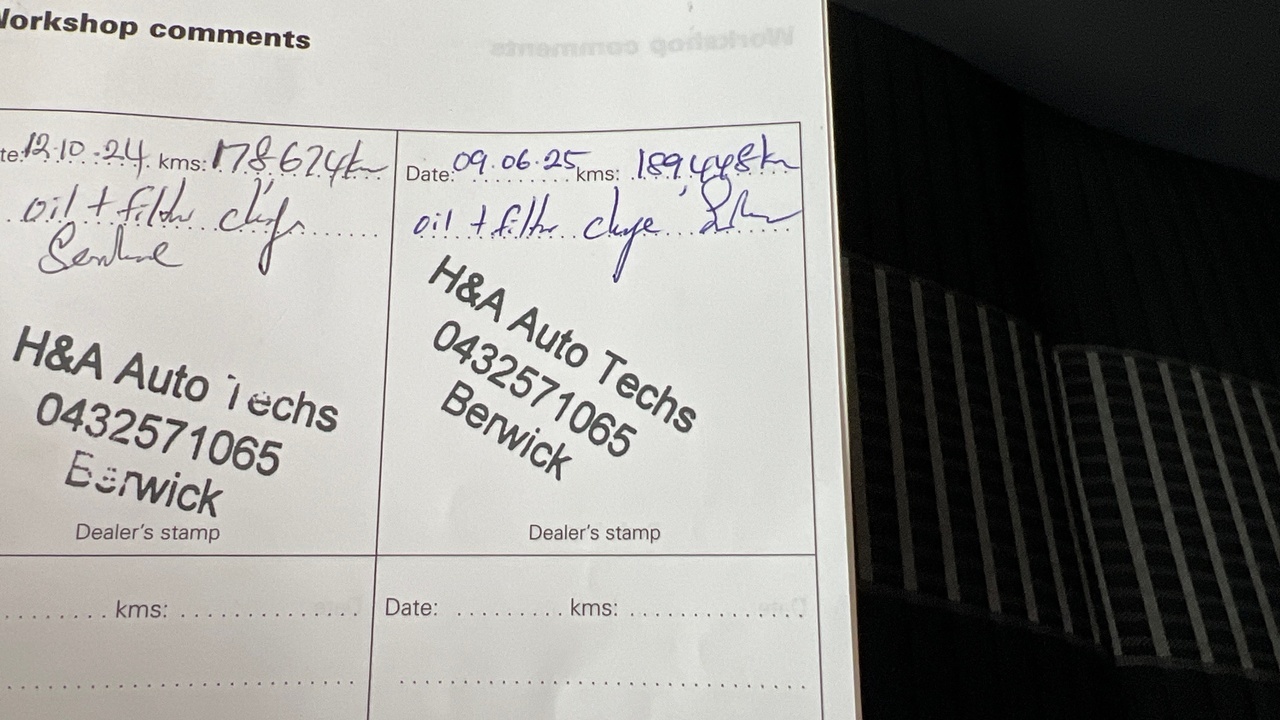 Workshop comments
te: 12.10.24. kms: 178,674km
oil + filter change
Service
H&A Auto Techs
0432571065
Berwick
Dealer's stamp
Date: 09.06.25 kms: 189,448km
oil + filter change
H&A Auto Techs
0432571065
Berwick
Dealer's stamp
kms:
Date: kms: